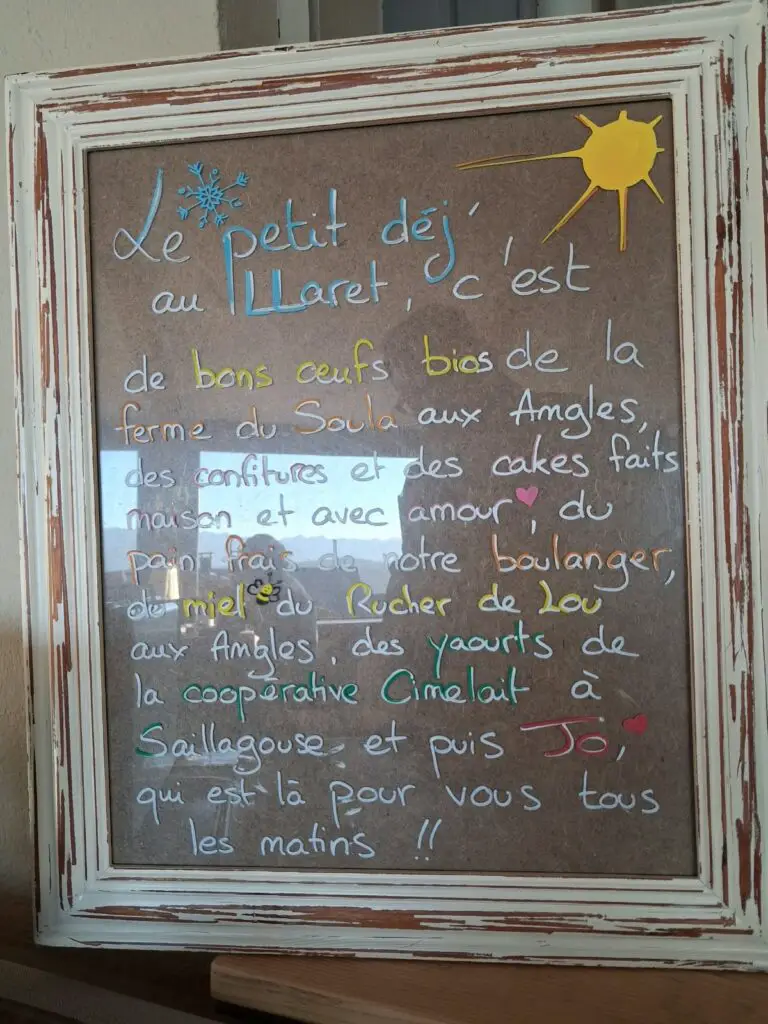 Le petit déj'
au LLaret, c'est
de bons œufs bios de la
ferme du Soula aux Angles,
des confitures et des cakes faits
maison et avec amour, du
pain frais de notre boulanger,
du miel du Rucher de Lou
aux Angles, des yaourts de
la coopérative Cimelait à
Saillagouse, et puis Jo,
qui est là pour vous tous
les matins !!